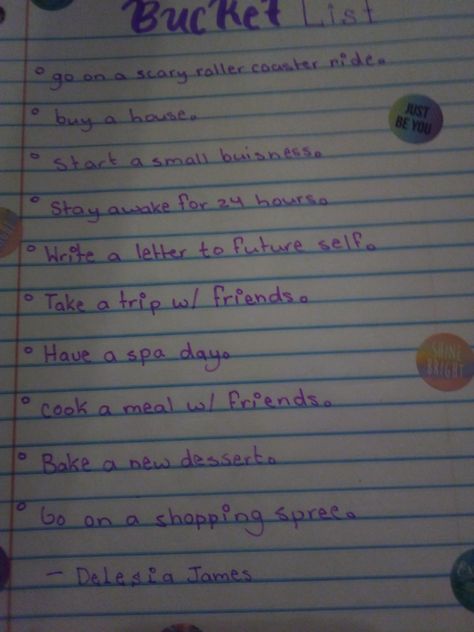 Bucket List
go on a scary roller coaster ride.
buy a house.
JUST
BE YOU
Start a small buisness.
Stay awake for 24 hours.
Write a letter to future self.
Take a trip w/ friends.
Have a spa day.
SHINE
BRIGHT
cook a meal w/ friends.
Bake a new dessert.
Go on a shopping spree.
- Delesia James